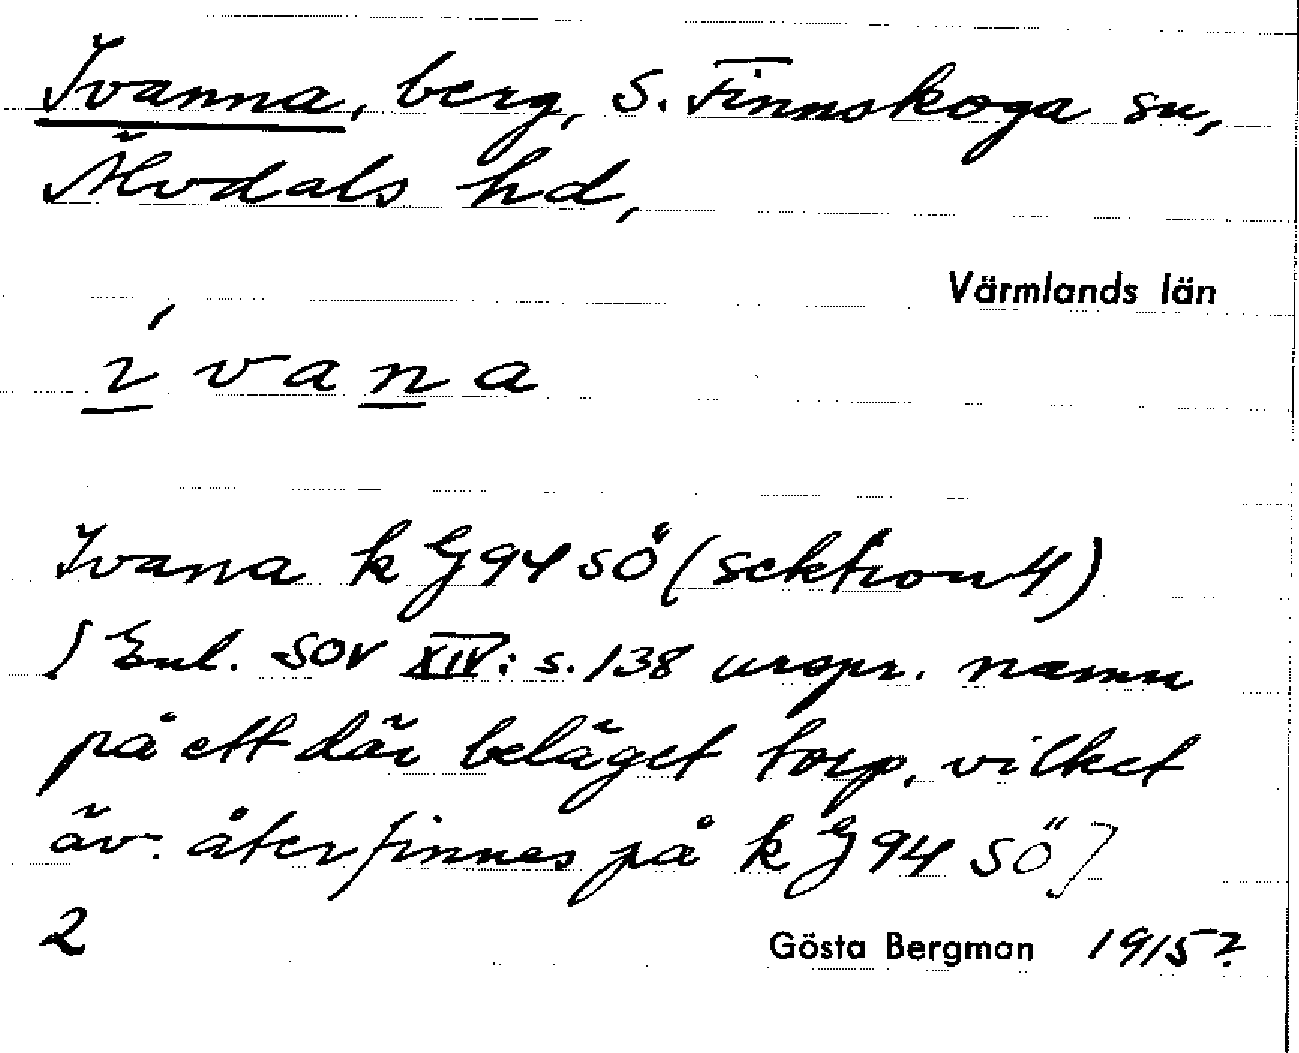 Ivanna, berg, S. Finnskoga sn,
Älvdals hd,
Värmlands län
í v a n a
Ivana k G94 SÖ (sektion 4)
[Enl. SOV XIV: s. 138 urspr. namn
på ett där beläget torp, vilket
äv. återfinnes på k G94 SÖ]
2
Gösta Bergman 1915?